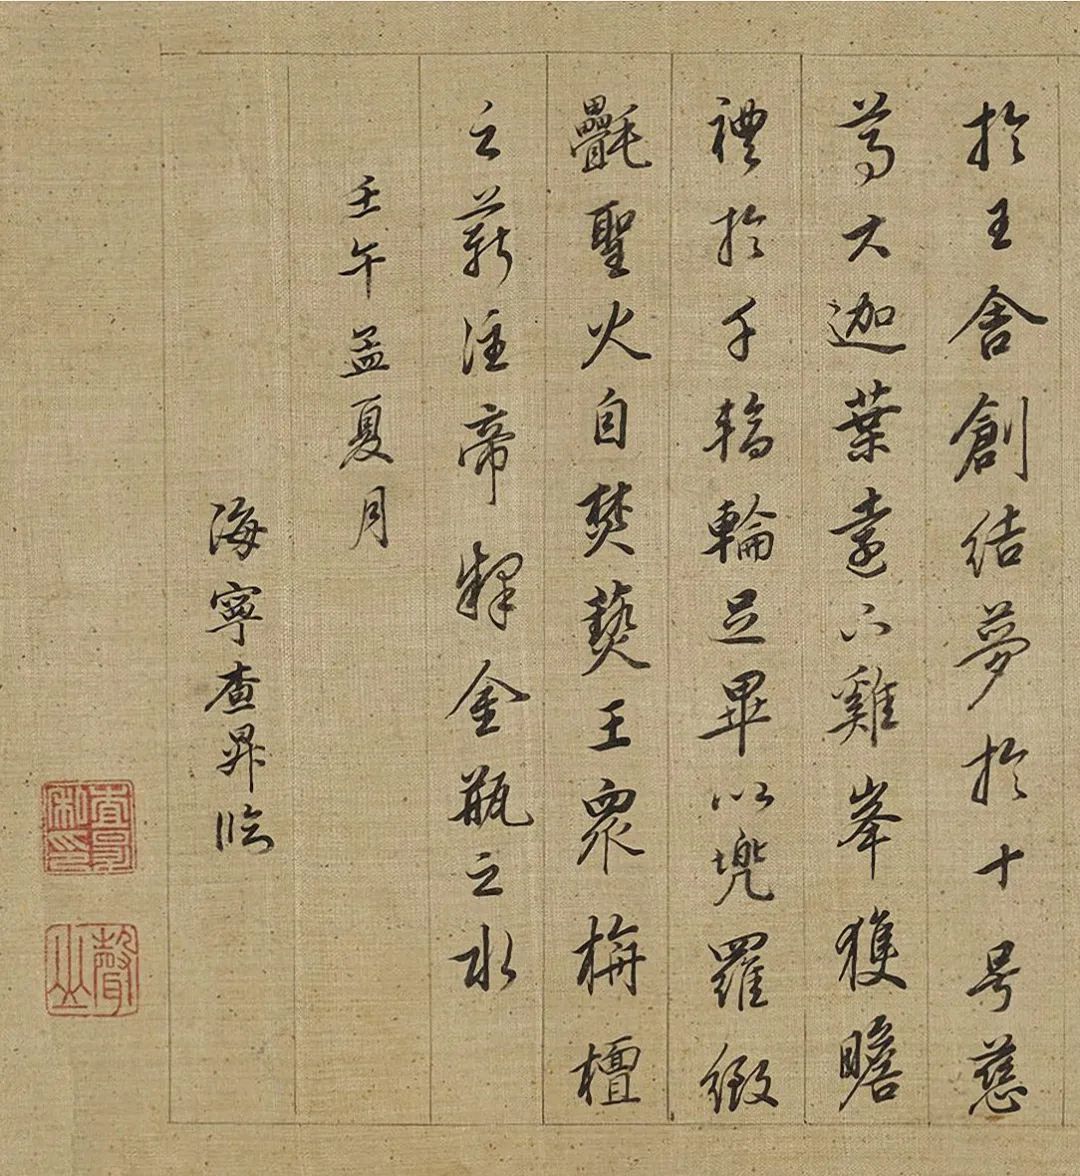 於王舍創結夢於十号慈
尊大迦葉遠下雞峯獲瞻
禮於千輻輪足畢以兜羅緻
氎聖火自焚爇王衆栴檀
之薪注帝釋金瓶之水
壬午孟夏月
海寧查昇臨
查昇私印
聲山